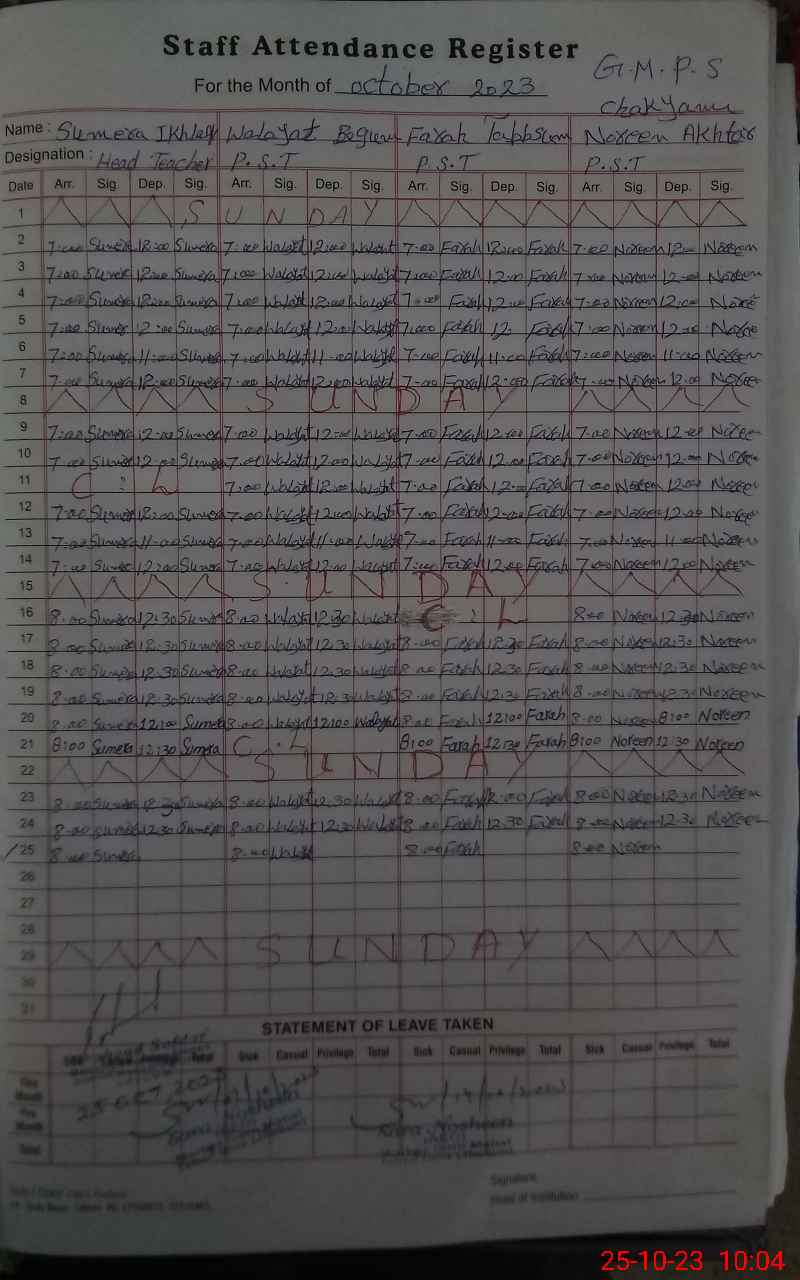 Staff Attendance Register
For the Month of october 2023
G.M.P.S
Name : Sumera Walayat Begum Farah Tabbsum Noreen Akhtar
Designation : Head Teacher P.S.T P.S.T P.S.T
Date Arr. Sig. Dep. Sig. Arr. Sig. Dep. Sig. Arr. Sig. Dep. Sig. Arr. Sig. Dep. Sig.
1 SUNDAY
2 7:00 Sumera 12:00 Sumera 7:00 Walayt 12:00 Walayt 7:00 Farah 12:00 Farah 7:00 Noreen 12:00 Noreen
3 7:00 Sumera 12:00 Sumera 7:00 Walayt 12:00 Walayt 7:00 Farah 12:00 Farah 7:00 Noreen 12:00 Noreen
4 7:00 Sumera 12:00 Sumera 7:00 Walayt 12:00 Walayt 7:00 Farah 12:00 Farah 7:00 Noreen 12:00
5 7:00 Sumera 12:00 Sumera 7:00 Walayt 12:00 Walayt 7:00 Farah 12: Farah 7:00 Noreen 12:00
6 7:00 Sumera 11:00 Sumera 7:00 Walayt 11:00 Walayt 7:00 Farah 11:00 Farah 7:00 Noreen 11:00 Noreen
7 7:00 Sumera 12:00 Sumera 7:00 Walayt 12:00 Walayt 7:00 Farah 12:00 Farah 7:00 Noreen 12:00 Noreen
8 SUNDAY
9 7:00 Sumera 12:00 Sumera 7:00 Walayt 12:00 Walayt 7:00 Farah 12:00 Farah 7:00 Noreen 12:00 Noreen
10 7:00 Sumera 12:00 Sumera 7:00 Walayt 12:00 Walayt 7:00 Farah 12:00 Farah 7:00 Noreen 12:00 Noreen
11 C : L 7:00 Walayt 12:00 Walayt 7:00 Farah 12:00 Farah 7:00 Noreen 12:00 Noreen
12 7:00 Sumera 12:00 Sumera 7:00 Walayt 12:00 Walayt 7:00 Farah 12:00 Farah 7:00 Noreen 12:00 Noreen
13 7:00 Sumera 11:00 Sumera 7:00 Walayt 11:00 Walayt 7:00 Farah 11:00 Farah 7:00 Noreen 11:00 Noreen
14 7:00 Sumera 12:00 Sumera 7:00 Walayt 12:00 Walayt 7:00 Farah 12:00 Farah 7:00 Noreen 12:00 Noreen
15 SUNDAY
16 8:00 Sumera 12:30 Sumera 8:00 Walayt 12:30 Walayt C : L 8:00 Noreen 12:30 Noreen
17 8:00 Sumera 12:30 Sumera 8:00 Walayt 12:30 Walayt 8:00 Farah 12:30 Farah 8:00 Noreen 12:30 Noreen
18 8:00 Sumera 12:30 Sumera 8:00 Walayt 12:30 Walayt 8:00 Farah 12:30 Farah 8:00 Noreen 12:30 Noreen
19 8:00 Sumera 12:30 Sumera 8:00 Walayt 12:30 Walayt 8:00 Farah 12:30 Farah 8:00 Noreen 12:30 Noreen
20 8:00 Sumera 12:00 Sumera 8:00 Walayt 12:00 Walayt 8:00 Farah 12:00 Farah 8:00 Noreen 8:00 Noreen
21 8:00 Sumera 12:30 Sumera C . L 8:00 Farah 12:30 Farah 8:00 Noreen 12:30 Noreen
22 SUNDAY
23 8:00 Sumera 12:30 Sumera 8:00 Walayt 12:30 Walayt 8:00 Farah Farah 8:00 Noreen 12:30 Noreen
24 8:00 Sumera 12:30 Sumera 8:00 Walayt 12:30 Walayt 8:00 Farah 12:30 Farah 8:00 Noreen 12:30 Noreen
25 8:00 Sumera 8:00 Walayt 8:00 Farah 8:00 Noreen
26
27
28
29 SUNDAY
30
31
STATEMENT OF LEAVE TAKEN
Total Sick Casual Privilege Total Sick Casual Privilege Total Sick Casual Privilege Total
Month
Month
Total
25 OCT 2023
Signature
Head of Institution
25-10-23 10:04